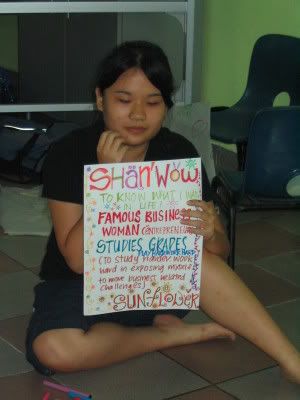 SHAN'WOW
TO KNOW WHAT I WAN
IN LIFE!
FAMOUS BUSINESS
WOMAN (ENTREPRENEUR)
STUDIES GRADES
PLAY HARD WORK HARD
(TO study harder, work
hard in exposing myself
to more business related
challenges)
SUNFLOWER